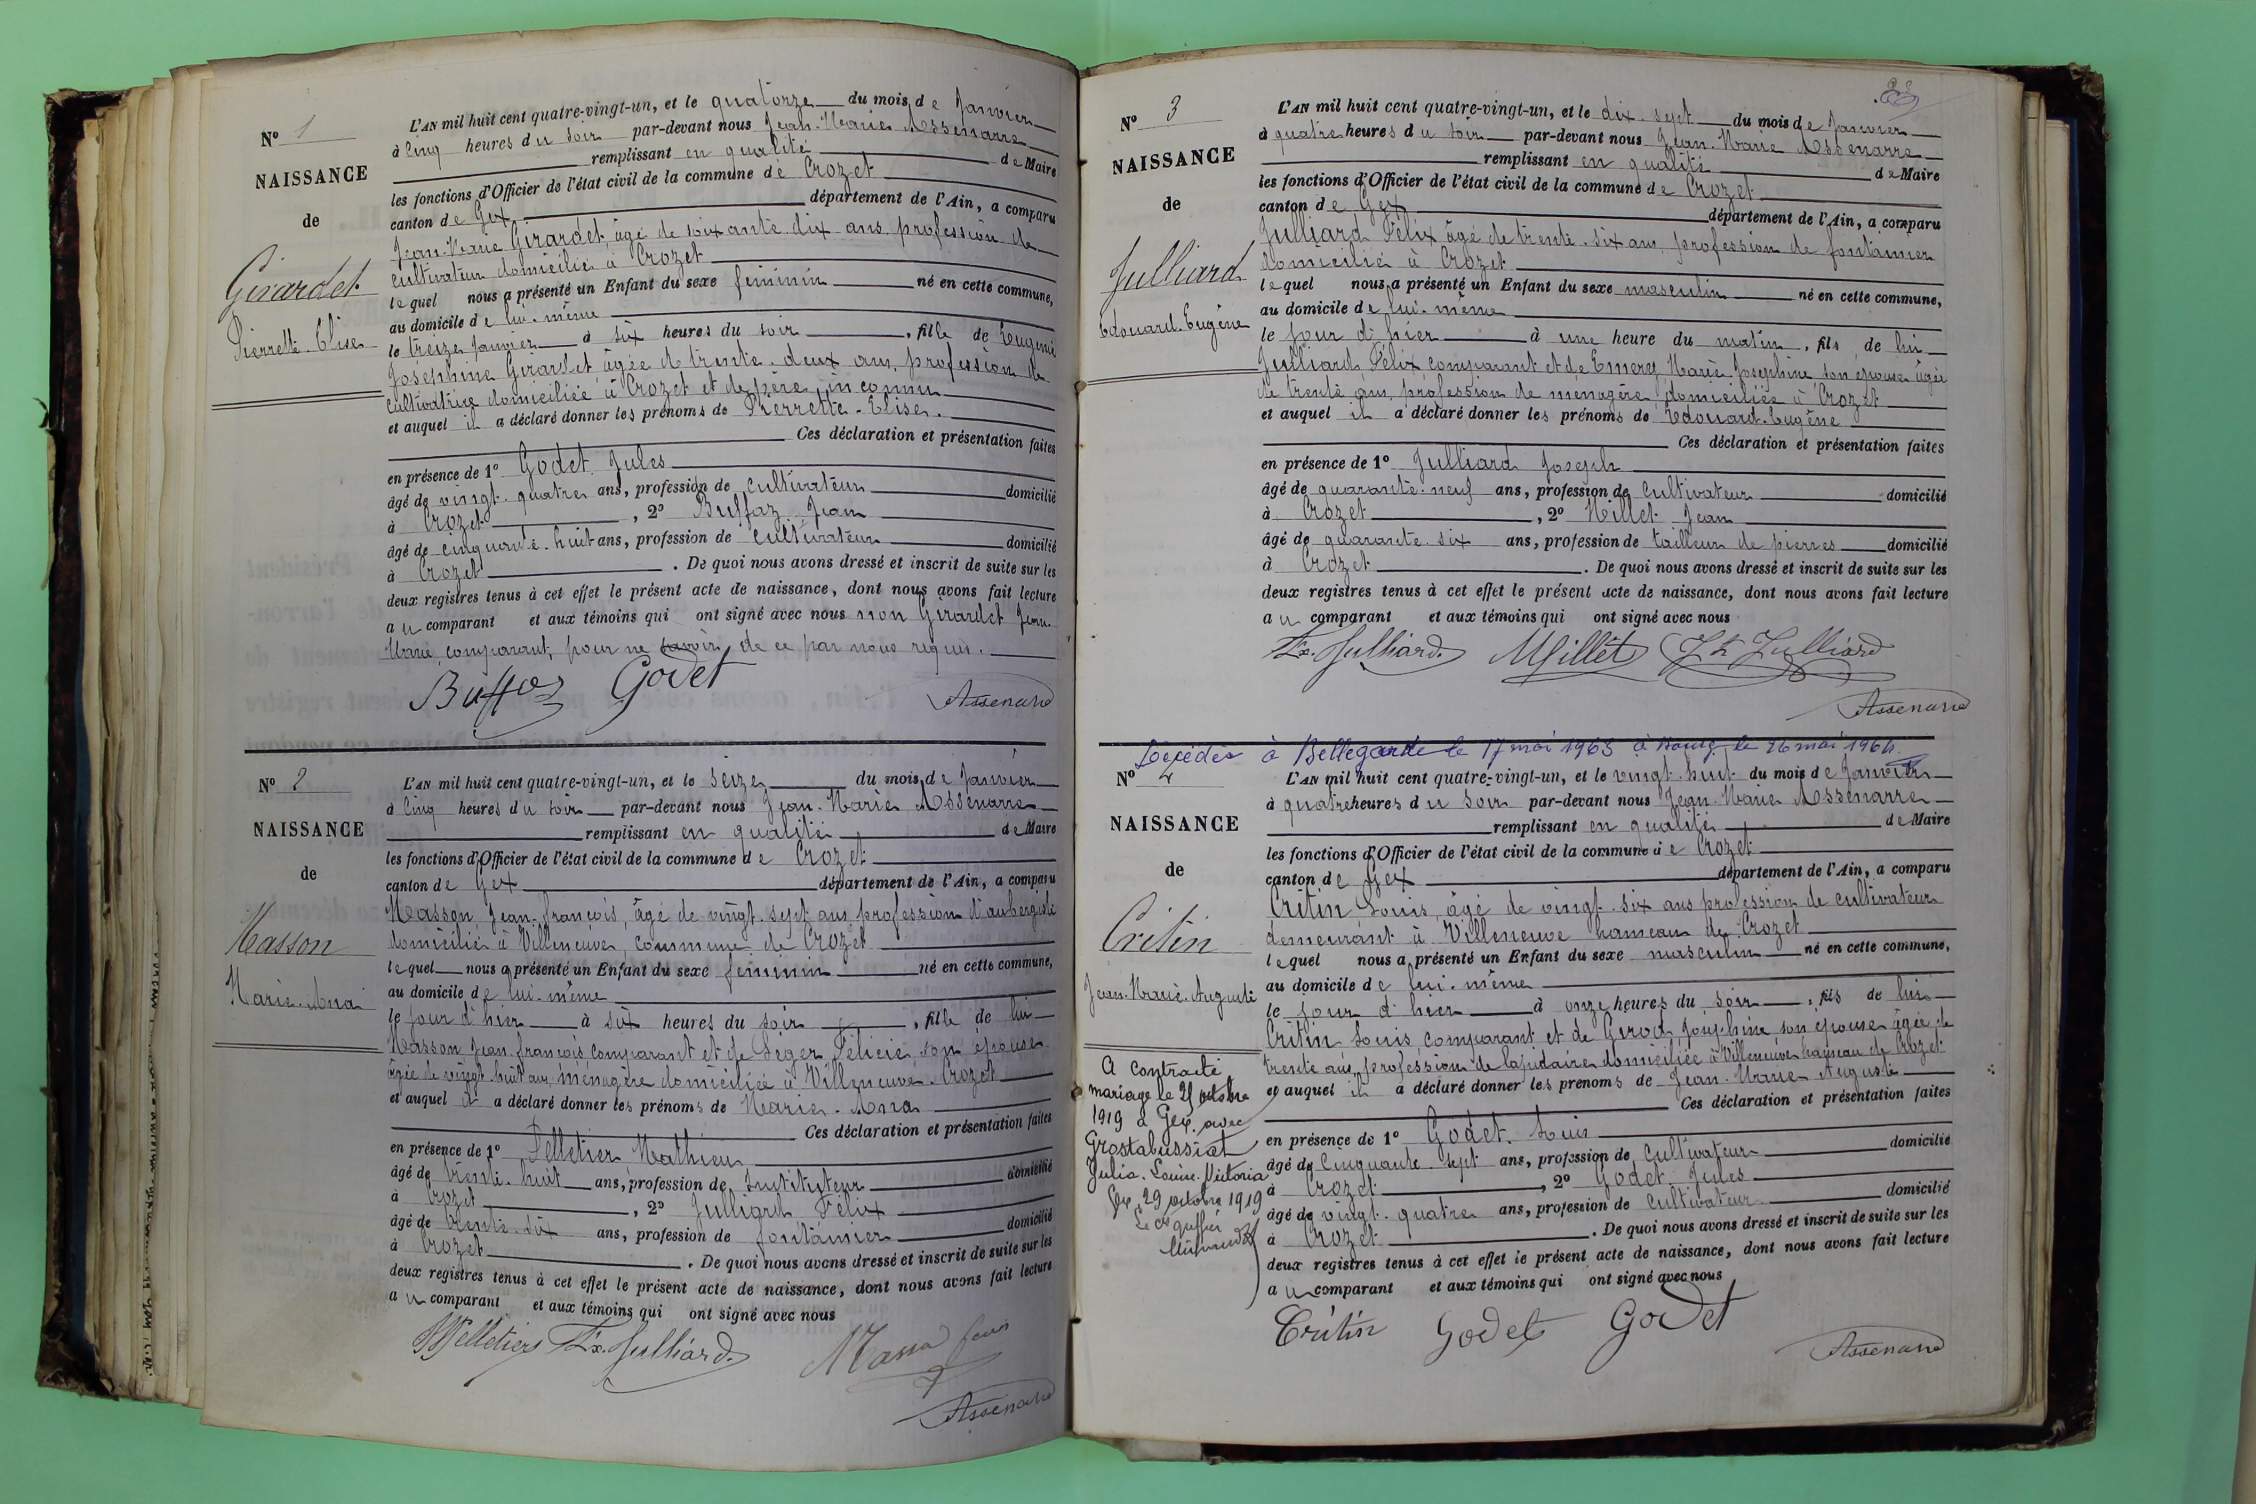 N° 1
NAISSANCE
de
Girardet
Pierrette-Elise
L'AN mil huit cent quatre-vingt-un, et le quatorze du mois de Janvier
à cinq heures du soir par-devant nous Jean-Marie Assenarre
remplissant en qualité de Maire
les fonctions d'Officier de l'état civil de la commune de Crozet
canton de Gex, département de l'Ain, a comparu
Jean-Marie Girardet, âgé de soixante dix ans, profession de
cultivateur domicilié à Crozet
lequel nous a présenté un Enfant du sexe féminin né en cette commune,
au domicile de lui-même
le treize Janvier à six heures du soir, fille de Eugénie
Josephine Girardet âgée de trente-deux ans, profession de
cultivatrice domiciliée à Crozet et de père inconnu
et auquel il a déclaré donner les prénoms de Pierrette-Elise.
Ces déclaration et présentation faites
en présence de 1° Godet Jules
âgé de vingt-quatre ans, profession de cultivateur domicilié
à Crozet, 2° Buffaz Jean
âgé de cinquante-huit ans, profession de cultivateur domicilié
à Crozet. De quoi nous avons dressé et inscrit de suite sur les
deux registres tenus à cet effet le présent acte de naissance, dont nous avons fait lecture
au comparant et aux témoins qui ont signé avec nous non Girardet Jean-
Marie, comparant, pour ne savoir de ce par nous requis.
Buffaz Godet
Assenarre
N° 2
NAISSANCE
de
Masson
Marie-Ana
L'AN mil huit cent quatre-vingt-un, et le seize du mois de Janvier
à cinq heures du soir par-devant nous Jean-Marie Assenarre
remplissant en qualité de Maire
les fonctions d'Officier de l'état civil de la commune de Crozet
canton de Gex département de l'Ain, a comparu
Masson Jean-François, âgé de vingt-sept ans, profession d'aubergiste
domicilié à Villeneuve, commune de Crozet
lequel nous a présenté un Enfant du sexe féminin né en cette commune,
au domicile de lui-même
le jour d'hier à six heures du soir, fille de lui
Masson Jean-François comparant et de Léger Félicie, son épouse
âgée de vingt-huit ans ménagère domiciliée à Villeneuve-Crozet
et auquel il a déclaré donner les prénoms de Marie-Ana
Ces déclaration et présentation faites
en présence de 1° Pelletier Mathieu
âgé de trente-huit ans, profession de Instituteur domicilié
à Crozet, 2° Julliard Félix
âgé de trente-six ans, profession de fontainier domicilié
à Crozet. De quoi nous avons dressé et inscrit de suite sur les
deux registres tenus à cet effet le présent acte de naissance, dont nous avons fait lecture
au comparant et aux témoins qui ont signé avec nous
Pelletier Fx. Julliard
Assenarre
N° 3
NAISSANCE
de
Julliard
Edouard-Eugène
L'AN mil huit cent quatre-vingt-un, et le dix-sept du mois de Janvier
à quatre heures du soir par-devant nous Jean-Marie Assenarre
remplissant en qualité de Maire
les fonctions d'Officier de l'état civil de la commune de Crozet
canton de Gex département de l'Ain, a comparu
Julliard Félix âgé de trente-six ans profession de fontainier
domicilié à Crozet
lequel nous a présenté un Enfant du sexe masculin né en cette commune,
au domicile de lui-même
le jour d'hier à une heure du matin, fils de lui
Julliard Félix comparant et de Emery Marie Joséphine son épouse âgée
de trente ans, profession de ménagère domiciliée à Crozet
et auquel il a déclaré donner les prénoms de Edouard-Eugène
Ces déclaration et présentation faites
en présence de 1° Julliard Joseph
âgé de quarante-neuf ans, profession de cultivateur domicilié
à Crozet, 2° Millet Jean
âgé de quarante-six ans, profession de tailleur de pierres domicilié
à Crozet. De quoi nous avons dressé et inscrit de suite sur les
deux registres tenus à cet effet le présent acte de naissance, dont nous avons fait lecture
au comparant et aux témoins qui ont signé avec nous
Fx. Julliard Millet Jh Julliard
Assenarre
Décédé à Bellegarde le 17 mai 1963 à Bourg, le 26 mai 1964.
N° 4
NAISSANCE
de
Critin
Jean-Marie-Auguste
A contracté
mariage le 25 octobre
1919 à Gex avec
Grostabussiat
Julia-Louise-Victoria
Gex, 29 octobre 1919
Le greffier
L'AN mil huit cent quatre-vingt-un, et le vingt-huit du mois de Janvier
à quatre heures du soir par-devant nous Jean-Marie Assenarre
remplissant en qualité de Maire
les fonctions d'Officier de l'état civil de la commune de Crozet
canton de Gex département de l'Ain, a comparu
Critin Louis, âgé de vingt-six ans profession de cultivateur
demeurant à Villeneuve hameau de Crozet
lequel nous a présenté un Enfant du sexe masculin né en cette commune,
au domicile de lui-même
le jour d'hier à onze heures du soir, fils de lui
Critin Louis, comparant et de Girod Joséphine son épouse âgée de
trente ans, profession de lapidaire domiciliée à Villeneuve hameau de Crozet
et auquel il a déclaré donner les prénoms de Jean-Marie Auguste
Ces déclaration et présentation faites
en présence de 1° Godet Louis
âgé de cinquante-sept ans, profession de cultivateur domicilié
à Crozet, 2° Godet Jules
âgé de vingt-quatre ans, profession de cultivateur domicilié
à Crozet. De quoi nous avons dressé et inscrit de suite sur les
deux registres tenus à cet effet le présent acte de naissance, dont nous avons fait lecture
au comparant et aux témoins qui ont signé avec nous
Critin Godet Godet
Assenarre